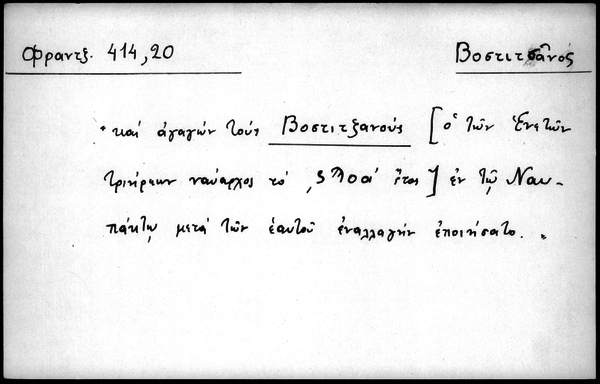 Φραντξ. 414,20
Βοστιτσᾶνός
"καί ἀγαγών τούς Βοστιτξανούς [ὁ τῶν Ἑνετῶν
τριήρεων ναύαρχος τό ͵ϛ Ϡοα' ἔτος] ἐν τῷ Ναυ-
πάκτῳ μετά τῶν ἑαυτοῦ ἐναλλαγήν ἐποιήσατο."